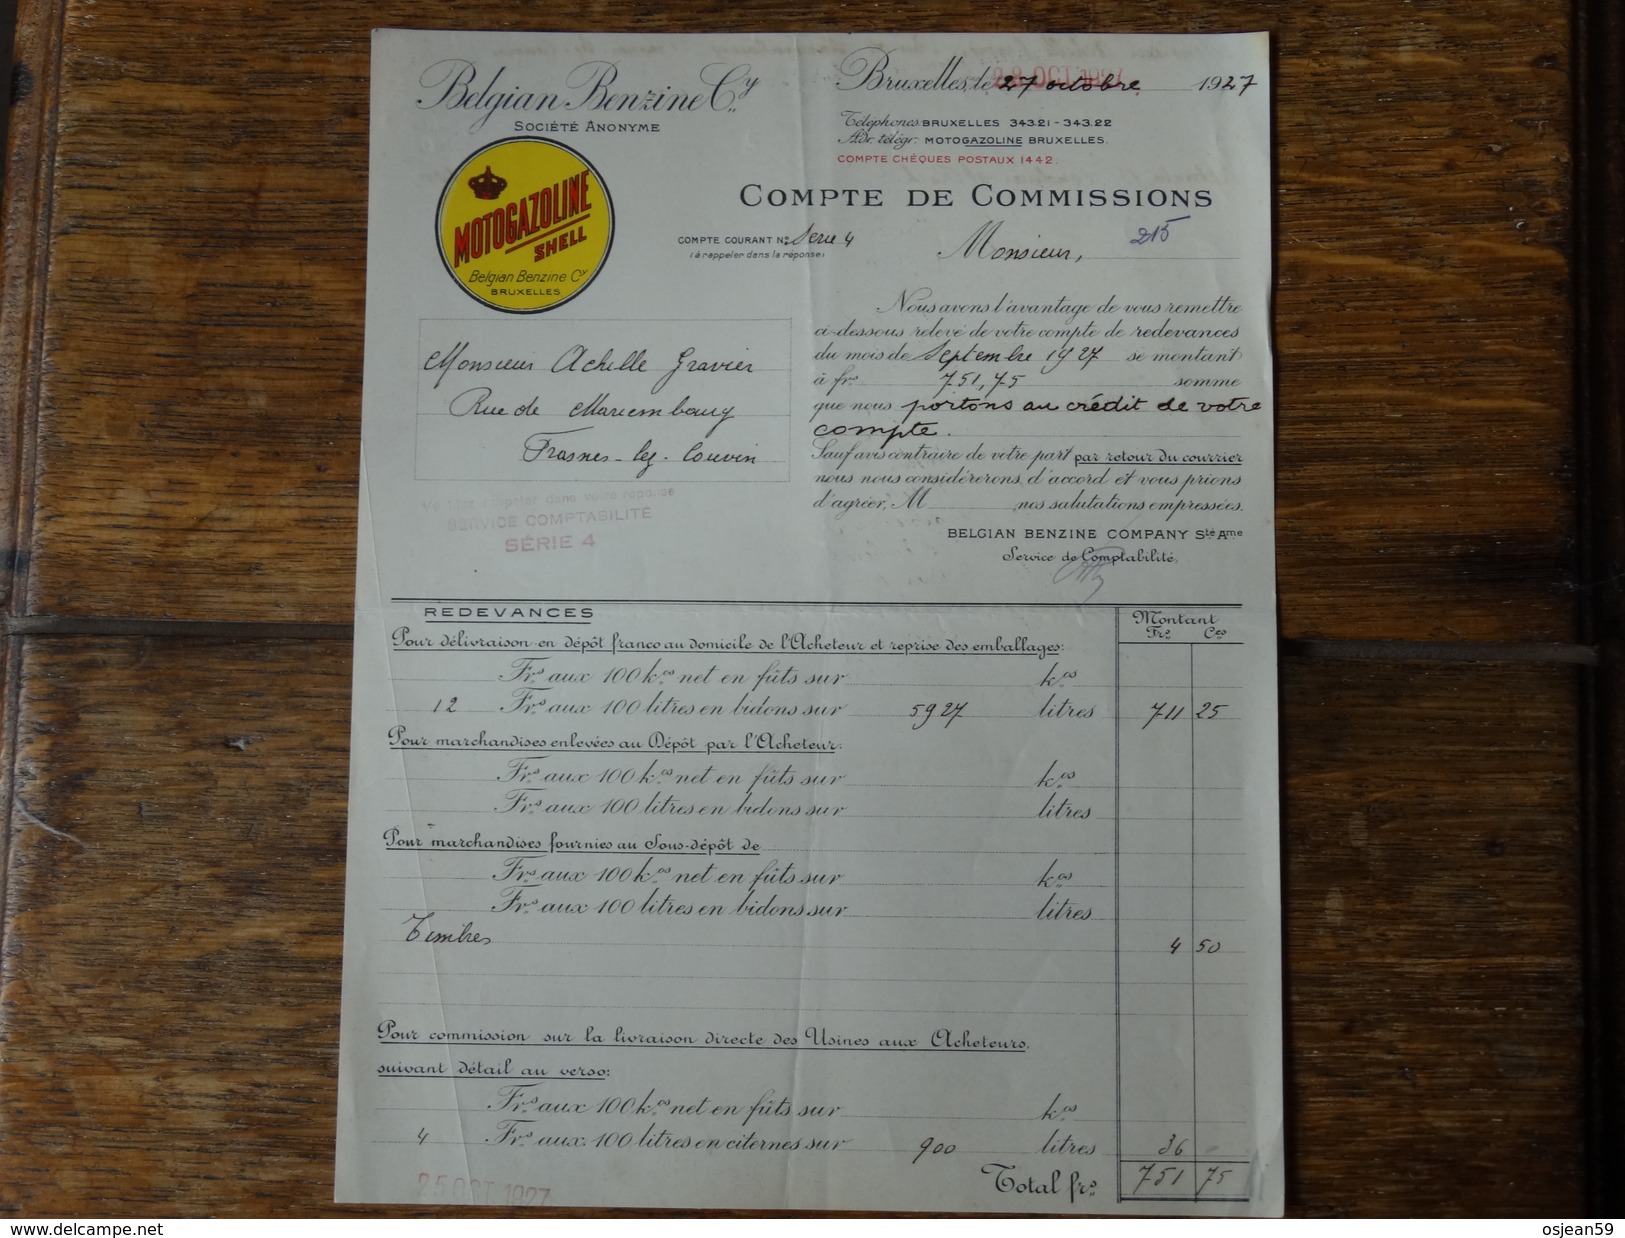 Belgian Benzine Cy
SOCIÉTÉ ANONYME
MOTOGAZOLINE
SHELL
Belgian Benzine Cy
BRUXELLES
Bruxelles, le 27 octobre 1927
Téléphones: BRUXELLES 343.21 - 343.22
Adr. télégr: MOTOGAZOLINE BRUXELLES.
COMPTE CHÈQUES POSTAUX 1442.
COMPTE DE COMMISSIONS
COMPTE COURANT No Serie 4
(à rappeler dans la réponse)
Monsieur, 215
Monsieur Achille Gravier
Rue de Mariembourg
Frasnes-lez-Couvin
Nous avons l'avantage de vous remettre
ci-dessous relevé de votre compte de redevances
du mois de Septembre 1927 se montant
à frs 751,75 somme
que nous portons au crédit de votre
compte.
Sauf avis contraire de votre part par retour du courrier
nous nous considérerons d'accord et vous prions
d'agréer, M nos salutations empressées.
BELGIAN BENZINE COMPANY Sté Ame
Service de Comptabilité,
Veuillez rappeler dans votre réponse
SERVICE COMPTABILITÉ
SÉRIE 4
REDEVANCES Montant
Frs Ces
Pour délivraison en dépôt franco au domicile de l'Acheteur et reprise des emballages:
Frs aux 100 kos net en fûts sur kos
12 Frs aux 100 litres en bidons sur 5927 litres 711 25
Pour marchandises enlevées au Dépôt par l'Acheteur:
Frs aux 100 kos net en fûts sur kos
Frs aux 100 litres en bidons sur litres
Pour marchandises fournies au Sous-dépôt de
Frs aux 100 kos net en fûts sur kos
Frs aux 100 litres en bidons sur litres
Timbres 4 50
Pour commission sur la livraison directe des Usines aux Acheteurs,
suivant détail au verso:
Frs aux 100 kos net en fûts sur kos
4 Frs aux 100 litres en citernes sur 900 litres 36
Total frs 751 75
25 OCT 1927
www.delcampe.net
osjean59